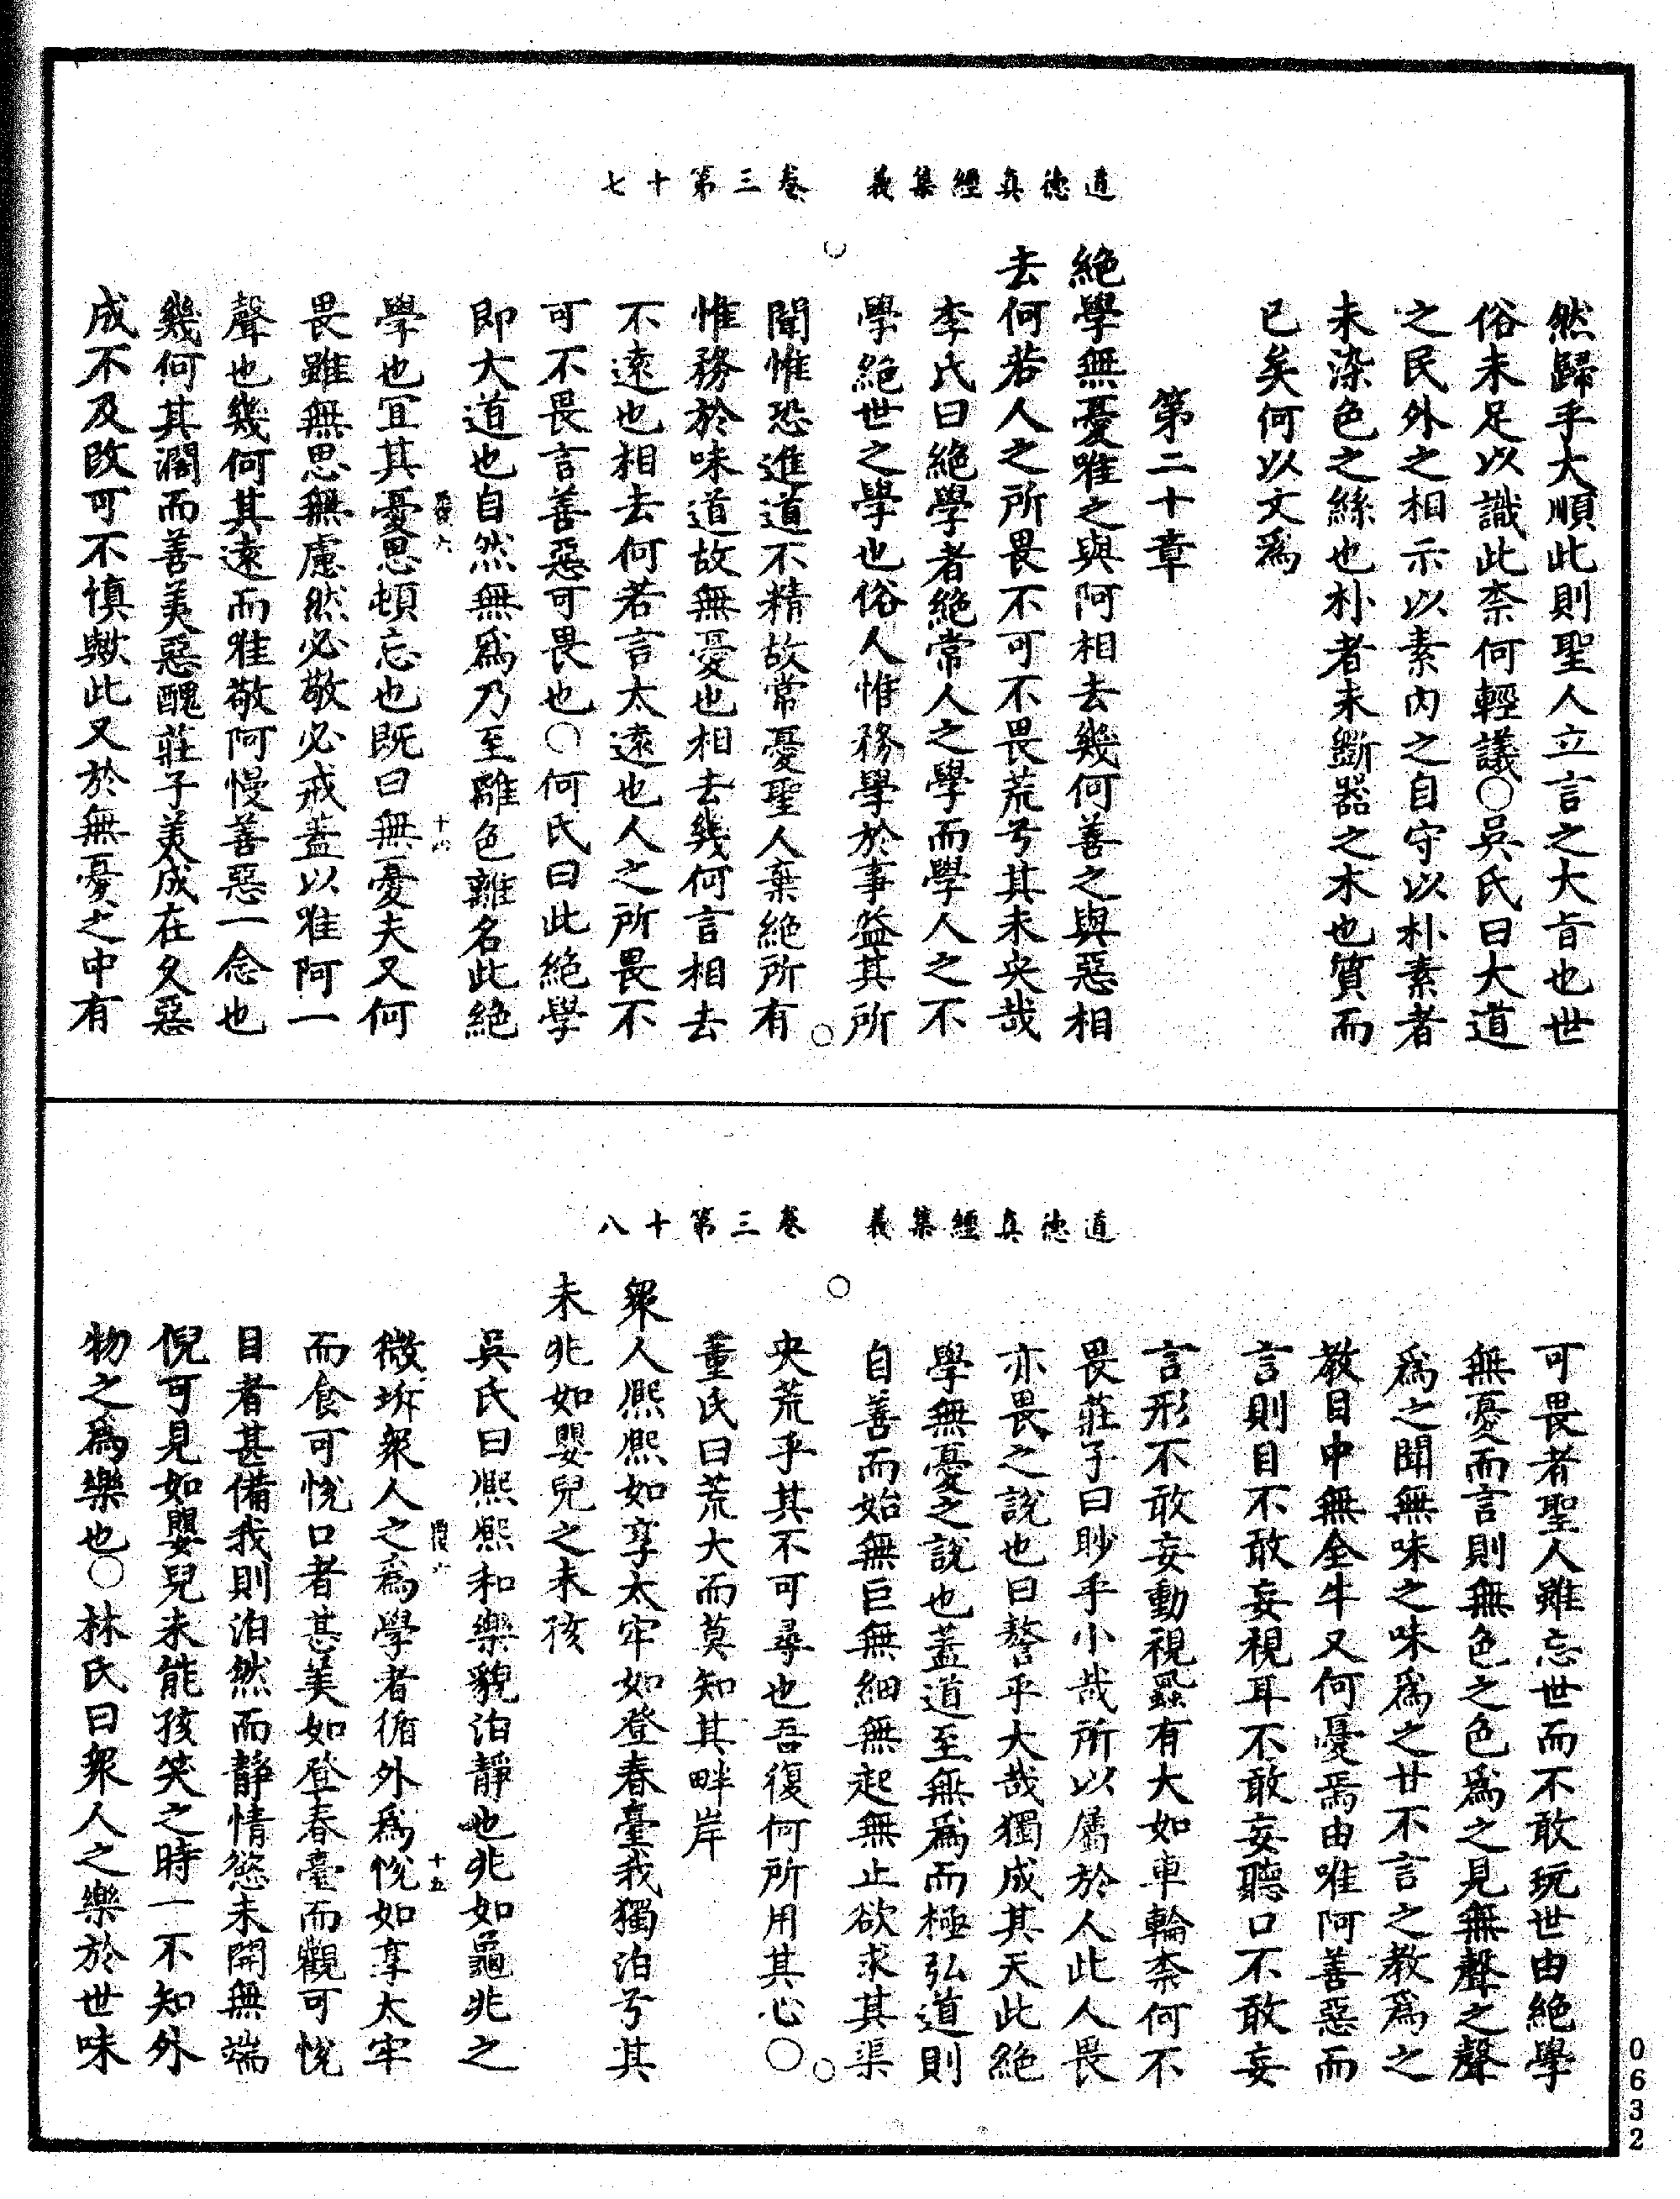 道德真經集義　卷三第十七
然歸乎大順此則聖人立言之大旨也世
俗未足以識此柰何輕議○吳氏曰大道
之民外之相示以素內之自守以朴素者
未染色之絲也朴者未斲器之木也質而
已矣何以文爲
第二十章
絕學無憂唯之與阿相去幾何善之與惡相
去何若人之所畏不可不畏荒兮其未央哉
李氏曰絕學者絕常人之學而學人之不
學絕世之學也俗人惟務學於事益其所
聞惟恐進道不精故常憂聖人棄絕所有
惟務於味道故無憂也相去幾何言相去
不遠也相去何若言太遠也人之所畏不
可不畏言善惡可畏也○何氏曰此絕學
即大道也自然無爲乃至離色離名此絕
學也冝其憂思頓忘也旣曰無憂夫又何
畏雖無思無慮然必敬必戒蓋以唯阿一
聲也幾何其遠而唯敬阿慢善惡一念也
幾何其濶而善美惡醜莊子美成在久惡
成不及改可不慎歟此又於無憂之中有
道德真經集義　卷三第十八
可畏者聖人雖忘世而不敢玩世由絕學
無憂而言則無色之色爲之見無聲之聲
爲之聞無味之味爲之甘不言之教爲之
教目中無全牛又何憂焉由唯阿善惡而
言則目不敢妄視耳不敢妄聽口不敢妄
言形不敢妄動視蝨有大如車輪柰何不
畏莊子曰眇乎小哉所以屬於人此人畏
亦畏之說也曰謷乎大哉獨成其天此絕
學無憂之說也蓋道至無爲而極弘道則
自善而始無巨無細無起無止欲求其渠
央荒乎其不可尋也吾復何所用其心○
董氏曰荒大而莫知其畔岸
衆人熈熈如享太牢如登春臺我獨泊兮其
未兆如嬰兒之未孩
吳氏曰熈熈和樂貌泊靜也兆如龜兆之
微坼衆人之爲學者循外爲悅如享太牢
而食可悅口者甚美如登春臺而觀可悅
目者甚備我則泊然而靜情慾未開無端
倪可見如嬰兒未能孩笑之時一不知外
物之爲樂也○林氏曰衆人之樂於世味
0632